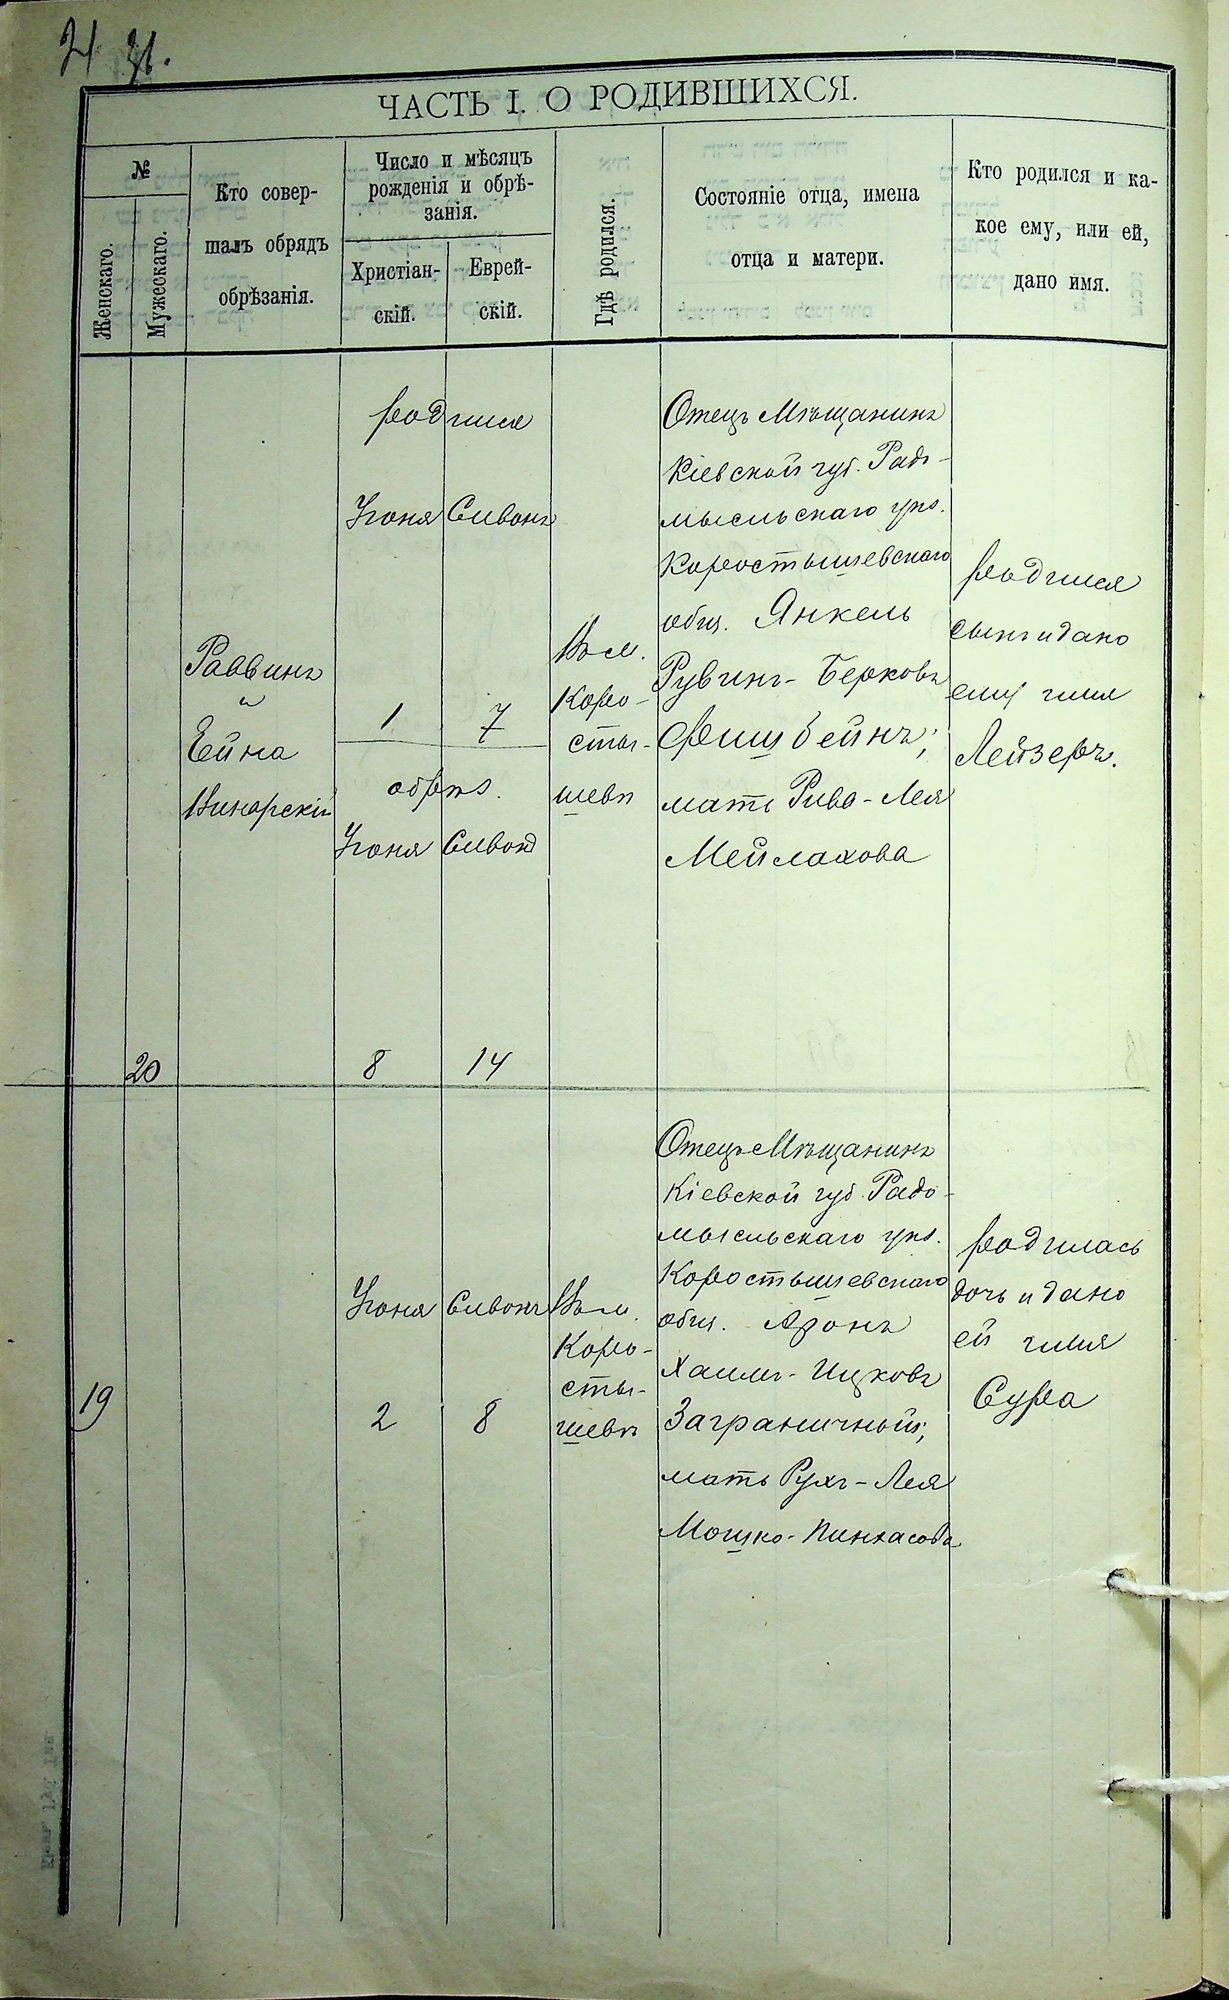 21 31.
ЧАСТЬ I. О РОДИВШИХСЯ.
№
Женскаго.
Мужескаго.
Кто совер-
шалъ обрядъ
обрѣзанія.
Число и мѣсяцъ
рожденія и обрѣ-
занія.
Христіан-
скій.
Еврей-
скій.
Гдѣ родился.
Состояніе отца, имена
отца и матери.
Кто родился и ка-
кое ему, или ей,
дано имя.
20
Раввинъ
и
Ейна
Винарскій
родился
Іюня Сивонъ
1 7
обрѣз.
Іюня Сивонъ
8 14
Въ м.
Коро-
сты-
шевѣ
Отецъ Мѣщанинъ
Кіевской губ. Радо-
мысльскаго уѣз.
Коростышевскаго
общ. Янкель
Рувинъ-Берковъ
Фишбейнъ;
мать Рива-Лея
Мейлахова
родился
сынъ и дано
ему имя
Лейзеръ.
19
Іюня Сивонъ
2 8
Въ м.
Коро-
сты-
шевѣ
Отецъ Мѣщанинъ
Кіевской губ. Радо-
мысльскаго уѣз.
Коростышевскаго
общ. Аронъ
Хаимъ-Ицковъ
Заграничный;
мать Рухъ-Лея
Мошко-Пинхасова
родилась
дочь и дано
ей имя
Сура